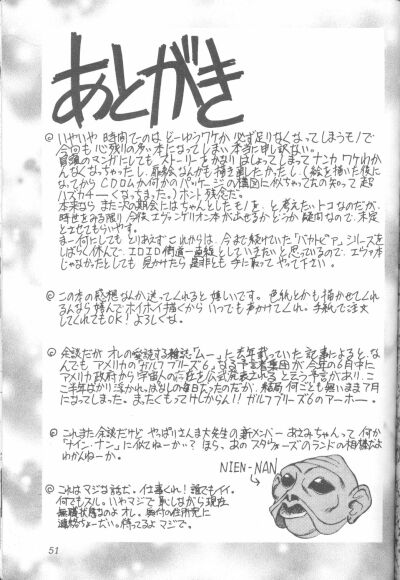 あとがき
◎いやいや 時間てのは どーゆうワケか 必ず足りなくなってしまうモノで
今回も 心残りの多い本になってしまい、本当に申し訳ない。
冒頭のマンガにしても ストーリーをかなり はしょってしまって ナンカ ワケわか
んなくなっちゃったし、表紙なんかも描き直したかったし(絵を描いた後に
なってから CDロムか何かのパッケージの構図に似ちゃってたの知って 超
ハズカチーくなっちまった。)ホント残念だ。
本来なら また次の期会に はちゃんとしたモノを、と考えたいトコなのだが、
時世をみる限り 今後エヴァンゲリオン本がよみせるか どうか 疑問なので、未定
とさせてもらいやす。
まー何にしても とりあえず これからは、今まで続けていた「バカトピア」シリーズを
しばらく休んで、エロエロ街道一直線としていきたいと思っているので、エヴァ本
じゃなかったとしても 見かけたら 是非とも 手に取って やって下さい。
◎この本の感想なんか送ってくれると嬉しいです。色紙とかも描かせてくれ
るんなら 喜んで ホイホイ描くから いつでも声かけてくれ。手紙で注文
してくれてもOK! よろしくな。
◎余談だが オレの愛読する雑誌「ムー」に去年載っていた記事によると、な
んでも アメリカの「ガルフブリーズ6」なる予言者集団が 今年の6月中に
アメリカ政府から 宇宙人の存在を公式発表される と言う予言があり、こ
こ半年ばかり浮かれっぱなしの毎日だったのだが、結局 何ごとも無いまま7月
になってしまった。まったくもってけしからん!! ガルフブリーズ6のアーホー。
◎これまた余談だけど やっぱりさんま大先生の新メンバー あさみちゃんって 何か
「ナイン・ナン」に似てねーかー? ほら、あの スターウォーズのランドの相棒だよ
わかんねーか。
NIEN-NAN
◎これはマジな話だ。仕事くれ! 誰でもイイ。
何でもスル。いやマジで恥しながら現在
無職状態なのよオレ。奥付の住所宛に
連絡ちょーだい。待ってるよ マジで。
51